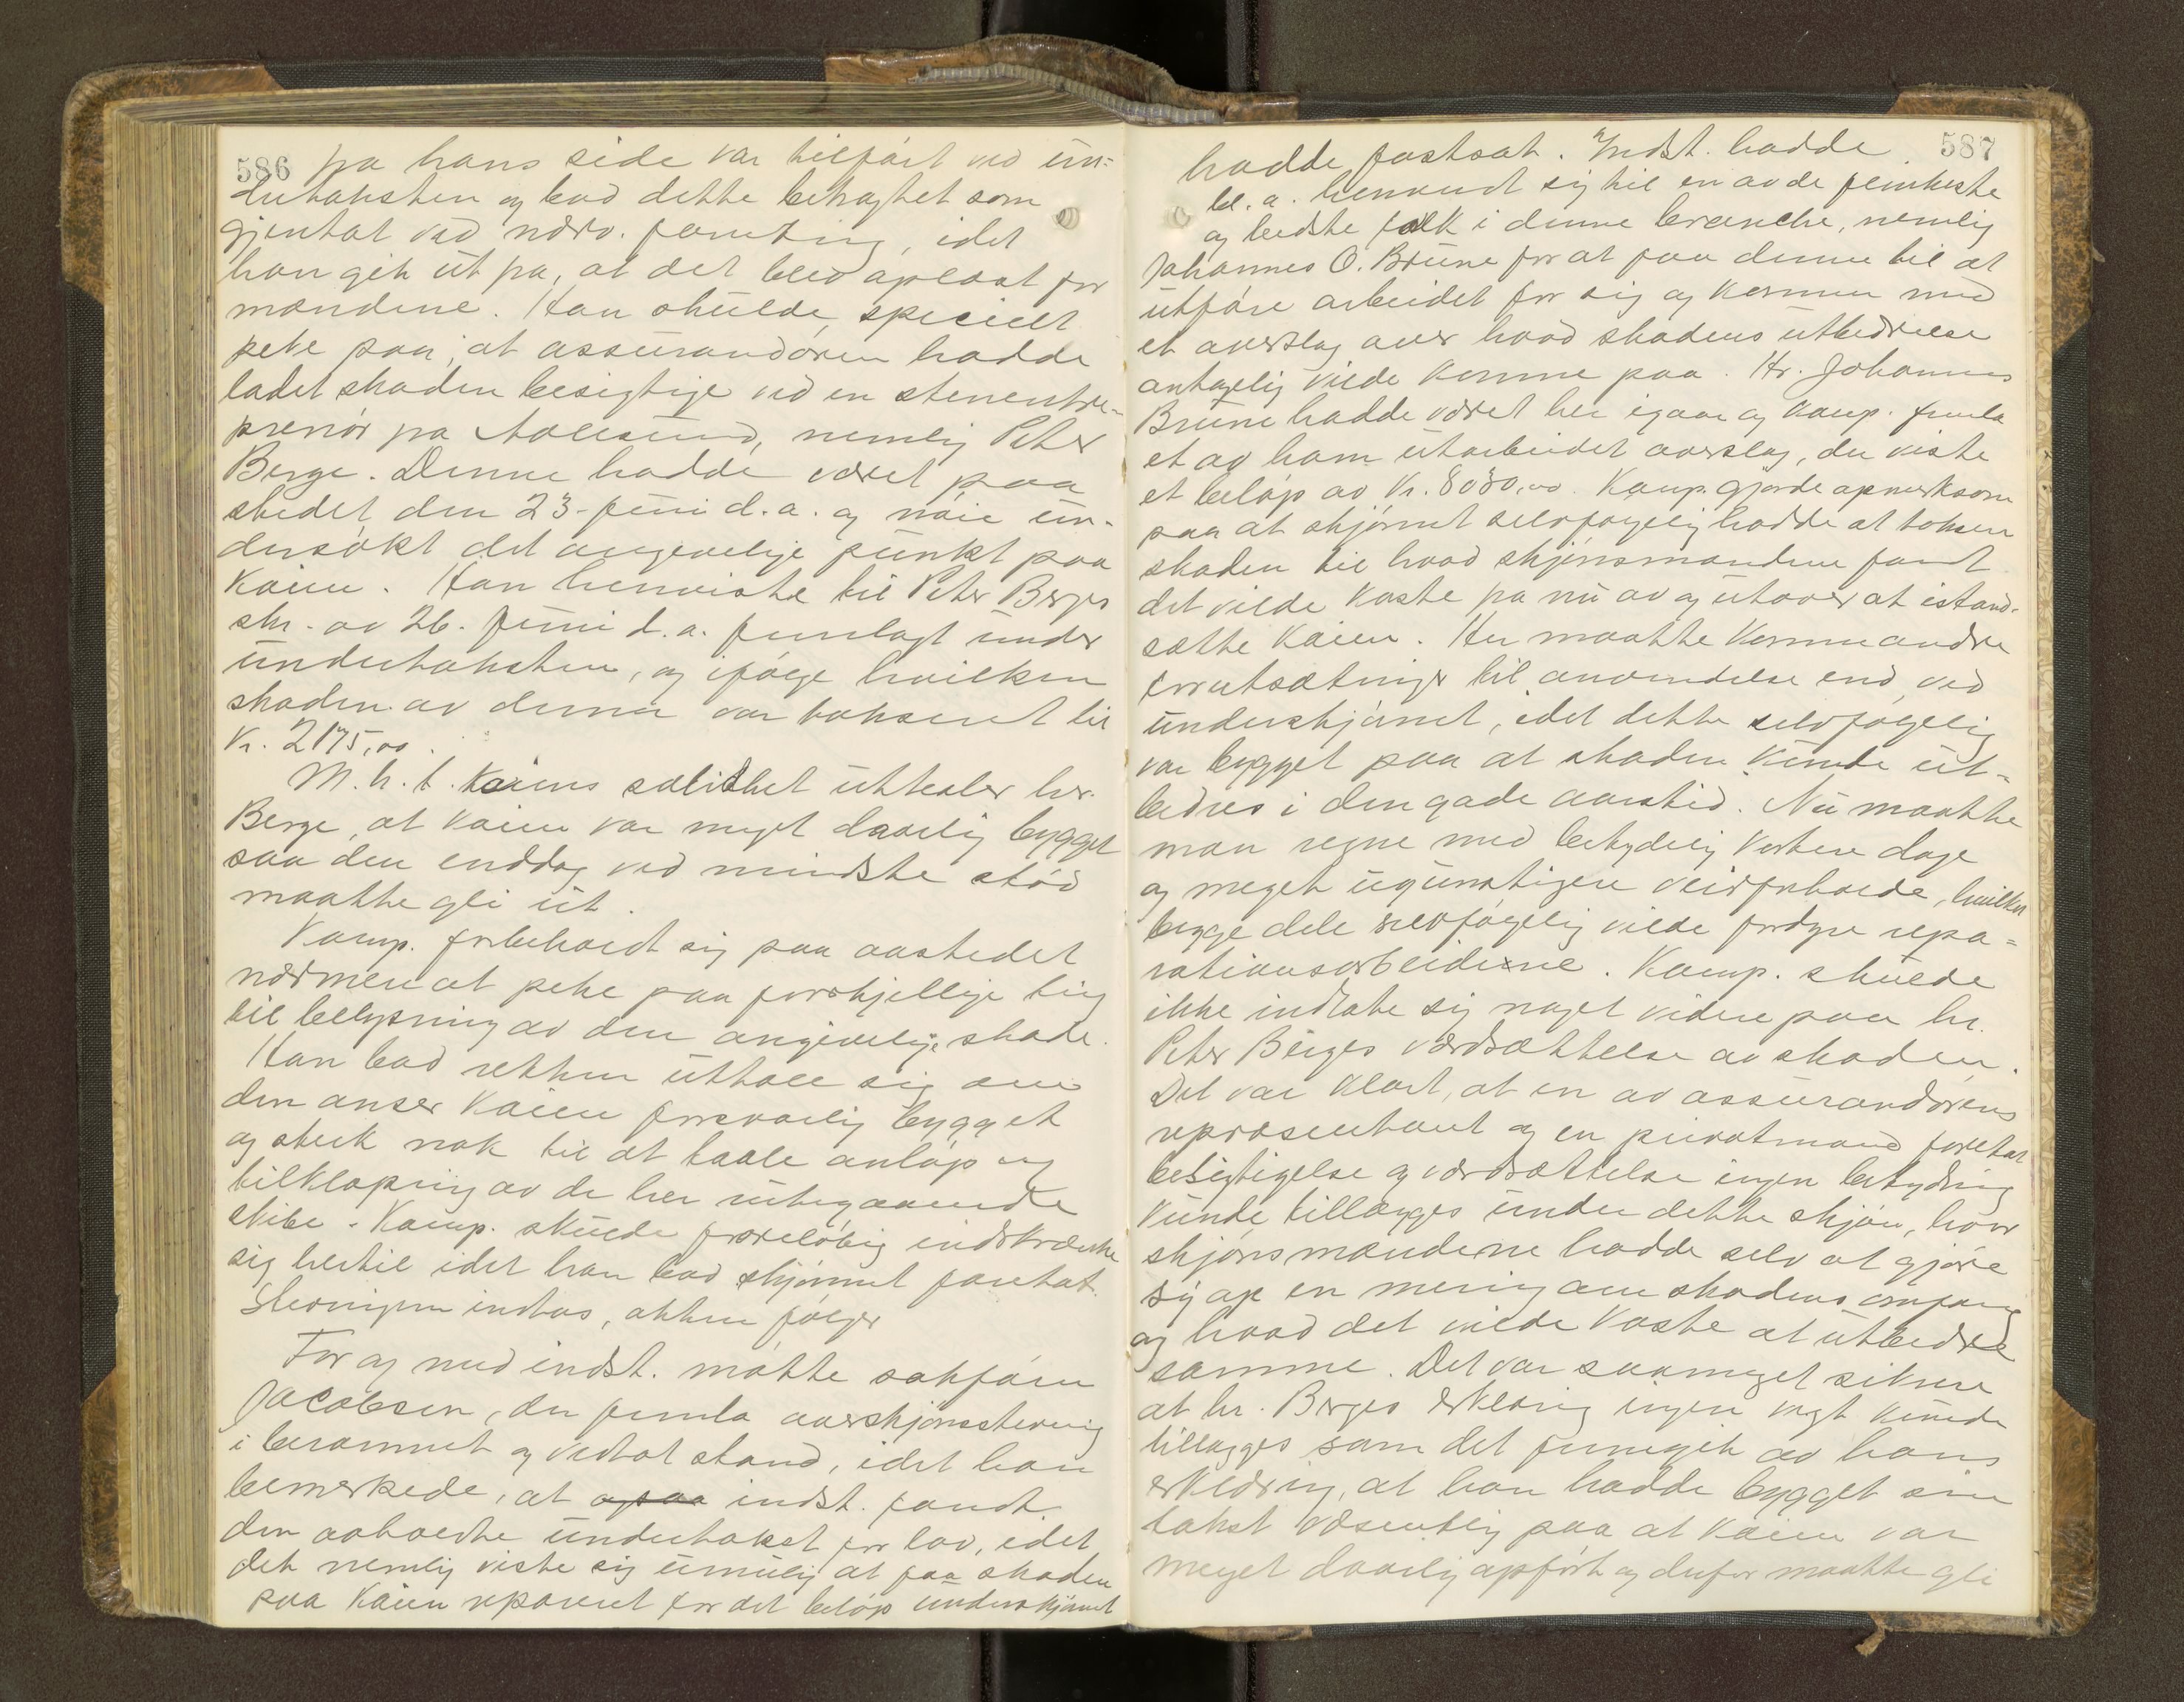 586
fra hans side var tilført ved un-
dertaksten og bad dette betragtet som
gjentat ved nærv. forretning, idet
han gik ut fra, at det blev oplæst for
mændene. Han skulde specielt
peke paa, at assurandøren hadde
ladet skaden besigtige ved en stenentre-
prenør fra Aalesund, nemlig Peter
Berge. Denne hadde været paa
stedet den 23-juni d.a. og nøie un-
dersøkt det angivelige punkt paa
kaien. Han henviste til Peter Berges
skr. av 26. juni d.a. fremlagt under
undertaksten, og ifølge hvilken
skaden av denne var takseret til
Kr. 2175,00.
M.h.t. kaiens soliditet uttaler hr.
Berge, at kaien var meget daarlig bygget
saa den enddog ved mindste stød
maatte gli ut.
Komp. forbeholdt sig paa aastedet
nærmere at peke paa forskjellige ting
til belysning av den angivelige skade.
Han bad retten uttale sig om
den anser kaien forsvarlig bygget
og sterk nok til at taale anløp og
tilklapning av de her rutegaaende
skibe. Komp. skulde foreløbig indskrænke
sig hertil idet han bad skjønnet foretat.
Stevningen indtas, akten følger
For og med indst. møtte sakfører
Jacobsen, der fremla overskjønsstevning
i berammet og vedtat stand, idet han
bemerkede, at ogsaa indst. fandt
den avholdte undertakst for lav, idet
det nemlig viste sig umulig at faa skaden
paa kaien reparert for det beløp underskjønnet
587
hadde fastsat. Indst. hadde
bl.a. henvendt sig til en av de flinkeste
og bedste folk i denne branche, nemlig
Johannes O. Brune for at faa denne til at
utføre arbeidet for sig og komme med
et overslag over hvad skadens utbedrelse
antagelig vilde komme paa. Hr. Johannes
Brune hadde været her igaar og komp. fremla
et av ham utarbeidet overslag, der viste
et beløp av Kr. 8030,00. Komp. gjorde opmerksom
paa at skjønnet selvfølgelig hadde at taksere
skaden til hvad skjønsmændene fandt
det vilde koste fra nu av og utover at istand-
sætte kaien. Her maatte komme andre
forutsætninger til anvendelse end ved
underskjønnet, idet dette selvfølgelig
var bygget paa at skaden kunde ut-
bedres i den gode aarstid. Nu maatte
man regne med betydelig kortere dage
og meget ugunstigere veirforholde, hvilket
begge dele selvfølgelig vilde fordyre repa-
rationsarbeiderne. Komp. skulde
ikke indlate sig noget videre paa hr.
Peter Berges værdsættelse av skaden.
Det var klart, at en av assurandørens
repræsentant og en privatmand foretat
besigtigelse og værdsættelse ingen betydning
kunde tillægges under dette skjøn, hvor
skjønsmændene hadde selv at gjøre
sig op en mening om skadens omfang
og hvad det vilde koste at utbedre
samme. Det var saameget sikrere
at hr. Berges erklæring ingen vegt kunde
tillægges som det fremgik av hans
erklæring, at han hadde bygget sin
takst væsentlig paa at kaien var
meget daarlig opført og derfor maatte gli